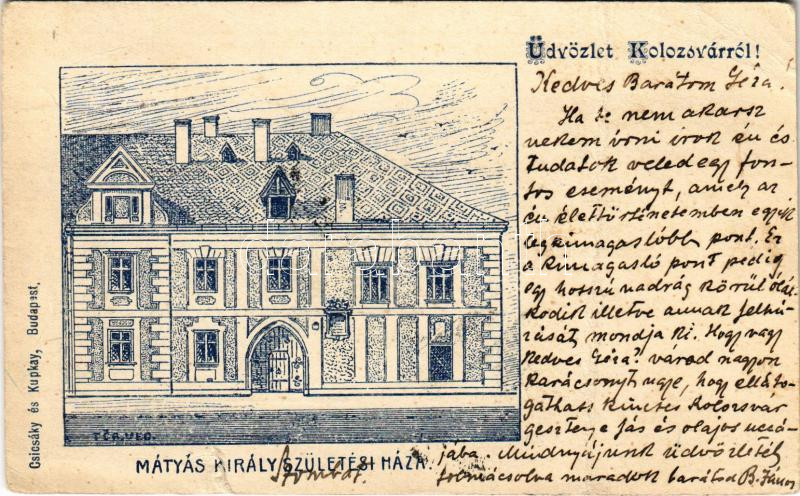 Üdvözlet Kolozsvárról!
Kedves Barátom Géza!
Ha te nem akarsz
nekem írni írok én és
tudatok veled egy fon-
tos eseményt, amely az
én élettörténetemben egyik
legkimagaslóbb pont. Ez
a kimagasló pont pedig
egy hosszú nadrág körül ólál-
kodik illetve annak felhú-
zását mondja ki. Hogy vagy
kedves Géza? várod nagyon
karácsonyt ugye, hogy elláto-
gathass kincses Kolozsvár
gesztenye fás és olajos uccá-
jába. Mindnyájunk üdvözletét
tolmácsolva maradok barátod B. János
Szombat.
MÁTYÁS KIRÁLY SZÜLETÉSI HÁZA.
Csicsáky és Kupkay, Budapest.
darabanth